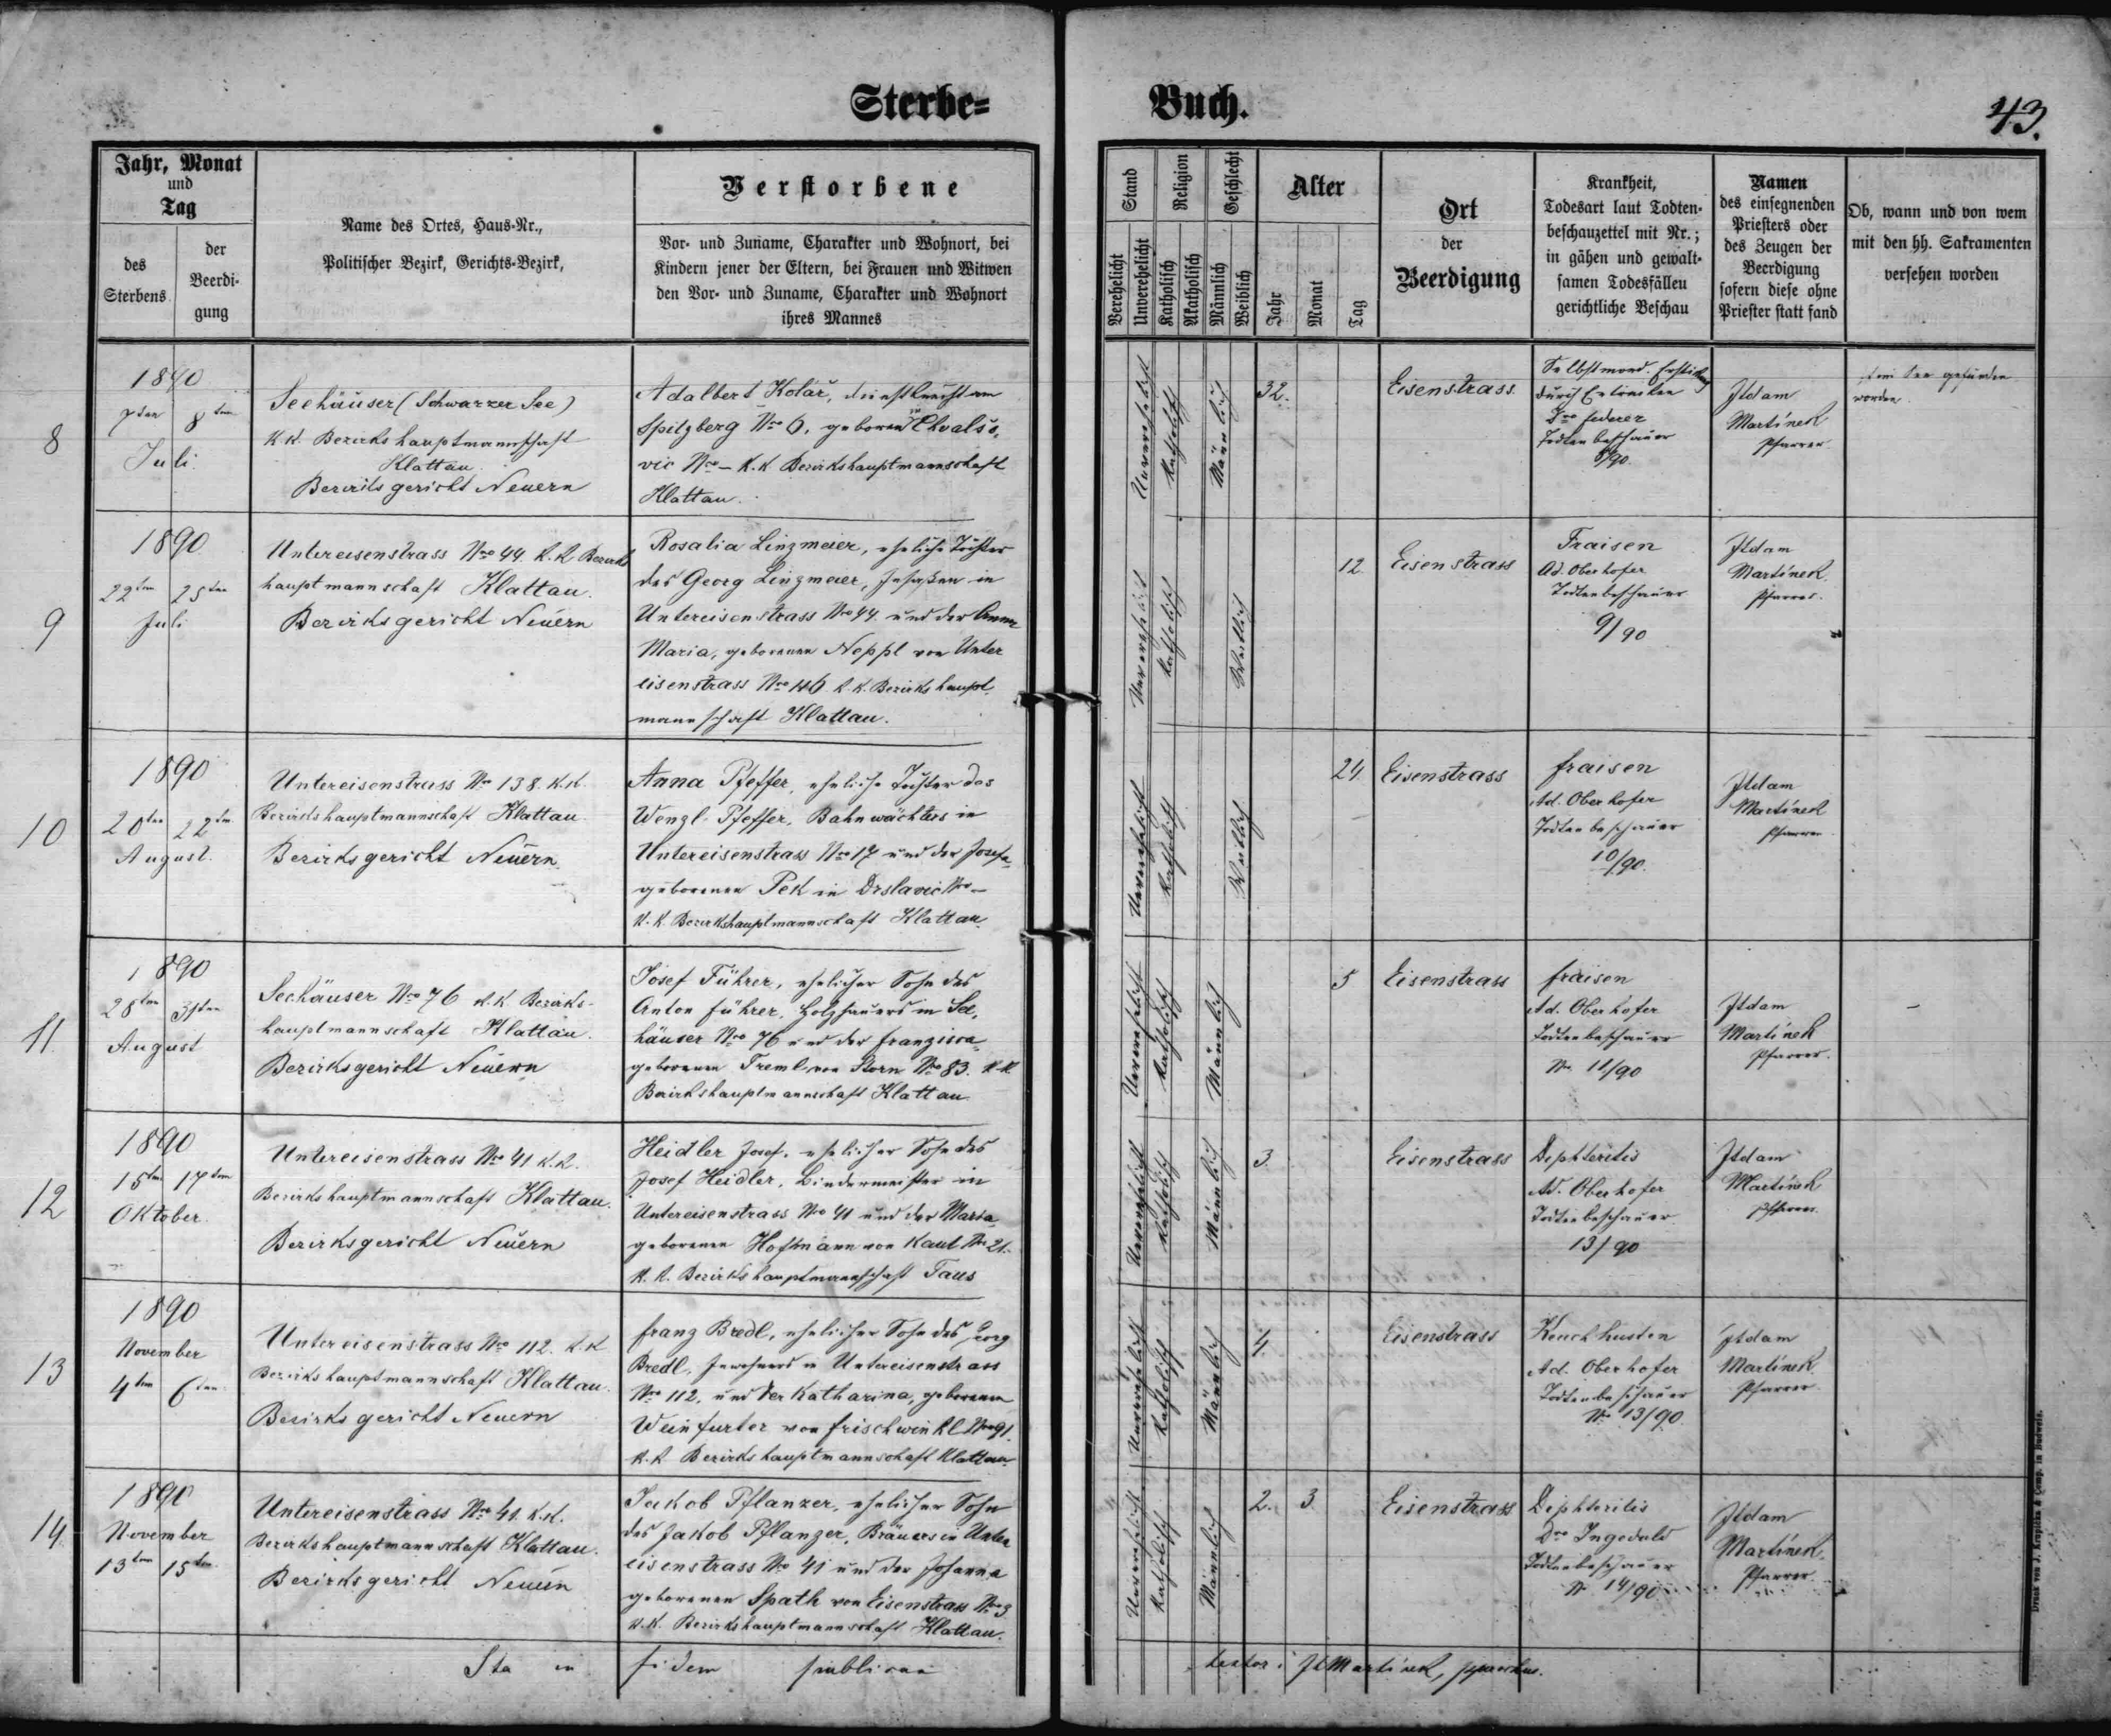 Sterbe= Buch.
43.
Jahr, Monat
und
Tag
des
Sterbens
der
Beerdi-
gung
Name des Ortes, Haus-Nr.,
Politischer Bezirk, Gerichts-Bezirk,
Verstorbene
Vor- und Zuname, Charakter und Wohnort, bei
Kindern jener der Eltern, bei Frauen und Witwen
den Vor- und Zuname, Charakter und Wohnort
ihres Mannes
Stand
Verehelicht
Unverehelicht
Religion
Katholisch
Akatholisch
Geschlecht
Männlich
Weiblich
Alter
Jahr
Monat
Tag
Ort
der
Beerdigung
Krankheit,
Todesart laut Todten-
beschauzettel mit Nr.;
in gähen und gewalt-
samen Todesfällen
gerichtliche Beschau
Namen
des einsegnenden
Priesters oder
des Zeugen der
Beerdigung
sofern diese ohne
Priester statt fand
Ob, wann und von wem
mit den hh. Sakramenten
versehen worden
8
1890
7ten 8ten
Juli
Seehäuser (Schwarzer See)
KK. Bezirkshauptmannschaft
Klattau
Bezirksgericht Neuern
Adalbert Kolář, Dienstknecht am
Spitzberg Nro 6, geboren in Chvalšo,
vic Nro – K.K Bezirkshauptmannschaft
Klattau.
Unverehelicht
Katholisch
Männlich
32.
Eisenstrass.
Selbstmord. Erstickung
durch Ertrinken
Dro Federer
Todtenbeschauer
8/90.
Adam
Martínek
Pfarrer
im See gefunden
worden.
9
1890
22ten 25ten
Juli
Untereisenstrass Nro 44. K.K Bezirks
hauptmannschaft Klattau.
Bezirksgericht Neuern
Rosalia Linzmeier, eheliche Tochter
des Georg Linzmeier, Insaßen in
Untereisenstrass Nro 44 und der Anna
Maria, geborenen Neppl von Unter
eisenstrass Nro 146 K.K. Bezirkshaupt
mannschaft Klattau.
Unverehelicht
Katholisch
Weiblich
12.
Eisenstrass
Fraisen
Ad. Oberhofer
Todtenbeschauer
9/90
Adam
Martínek
Pfarrer.
10
1890
20ten 22ten
August.
Untereisenstrass Nro 138. K.K.
Bezirkshauptmannschaft Klattau
Bezirksgericht Neuern.
Anna Pfeffer, eheliche Tochter des
Wenzl Pfeffer, Bahnwächters in
Untereisenstrass Nro 17 und der Josefa
geborenen Pek in Drslavic Nro –
K.K. Bezirkshauptmannschaft Klattau
Unverehelicht
Katholisch
Weiblich
24.
Eisenstrass
Fraisen
Ad. Oberhofer
Todtenbeschauer
10/90.
Adam
Martínek
Pfarrer
11
1890
28ten 31ten
August
Seehäuser Nro 76 K.K Bezirks-
hauptmannschaft Klattau.
Bezirksgericht Neuern
Josef Führer, ehelicher Sohn des
Anton Führer, Holzhauers in See,
häuser Nro 76 und der Franzisca
geborenen Treml von Storn Nro 83. K.K
Bezirkshauptmannschaft Klattau
Unverehelicht
Katholisch
Männlich
5
Eisenstrass
Fraisen
Ad. Oberhofer
Todtenbeschauer
Nr. 11/90
Adam
Martínek
Pfarrer.
–
12
1890
15ten 17ten
Oktober.
Untereisenstrass Nro 41 K.K.
Bezirkshauptmannschaft Klattau.
Bezirksgericht Neuern
Heidler Josef, ehelicher Sohn des
Josef Heidler, Bindermeister in
Untereisenstrass Nro 41 und der Maria
geborenen Hoffmann von Kaut Nro 21.
K.K. Bezirkshauptmannschaft Taus
Unverehelicht
Katholisch
Männlich
3.
Eisenstrass
Diphteritis
Ad. Oberhofer
Todtenbeschauer
13/90
Adam
Martínek
Pfarrer.
13
1890
November
4ten 6ten
Untereisenstrass Nro 112. K.K
Bezirkshauptmannschaft Klattau.
Bezirksgericht Neuern
Franz Bredl, ehelicher Sohn des Georg
Bredl, Inwohners in Untereisenstrass
Nro 112, und der Katharina, geborenen
Weinfurter von Frischwinkl Nro 91.
K.K Bezirkshauptmannschaft Klattau
Unverehelicht
Katholisch
Männlich
4.
Eisenstrass
Keuchhusten
Ad. Oberhofer
Todtenbeschauer
Nr. 13/90.
Adam
Martínek
Pfarrer
14
1890
November
13ten 15ten
Untereisenstrass Nro 41. K.K.
Bezirkshauptmannschaft Klattau.
Bezirksgericht Neuern
Jakob Pflanzer, ehelicher Sohn
des Jakob Pflanzer, Bräuers in Unter
eisenstrass Nro 41 und der Johanna
geborenen Späth von Eisenstrass Nro 3
K.K. Bezirkshauptmannschaft Klattau.
Unverehelicht
Katholisch
Männlich
2. 3.
Eisenstrass
Diphteritis
Dro Ingeduld
Todtenbeschauer
Nr. 14/90
Adam
Martínek
Pfarrer.
Ita in fidem publicam testor: Ad Martínek, parochus.
Druck von J. Kropička & Comp. in Budweis.